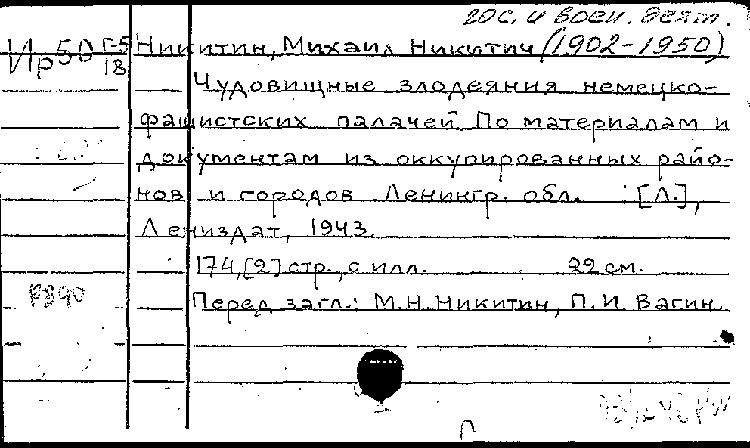 гос. и воен. деят.
Ир50 Г-5 Никитин, Михаил Никитич (1902-1950)
18
Чудовищные злодеяния немецко-
фашистских палачей. По материалам и
документам из оккупированных райо-
нов и городов Ленингр. обл. : [Л.],
Лениздат, 1943.
174,[2] стр., с илл. 22 см.
Перед загл.: М.Н. Никитин, П.И. Вагин.